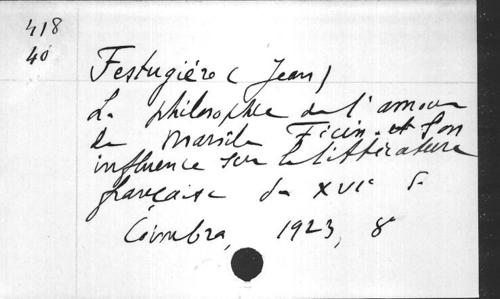 418
40
Festugière (Jean)
La philosophie de l'amour
de Marsile Ficin et son
influence sur la littérature
française du XVIe s.
Coimbra, 1923, 8